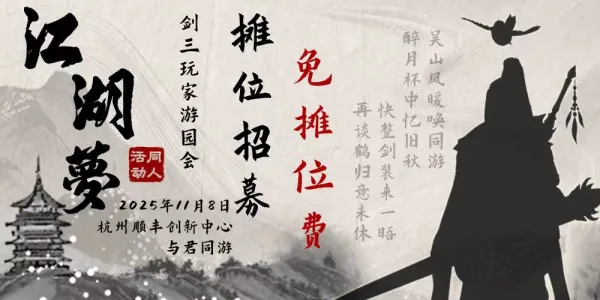 江湖夢
同人
活动
剑三玩家游园会
摊位招募
免摊位费
2025年11月8日
杭州顺丰创新中心
与君同游
吴山风暖唤同游
醉月杯中忆旧秋
快整剑装来一晤
再谈鹤归意未休